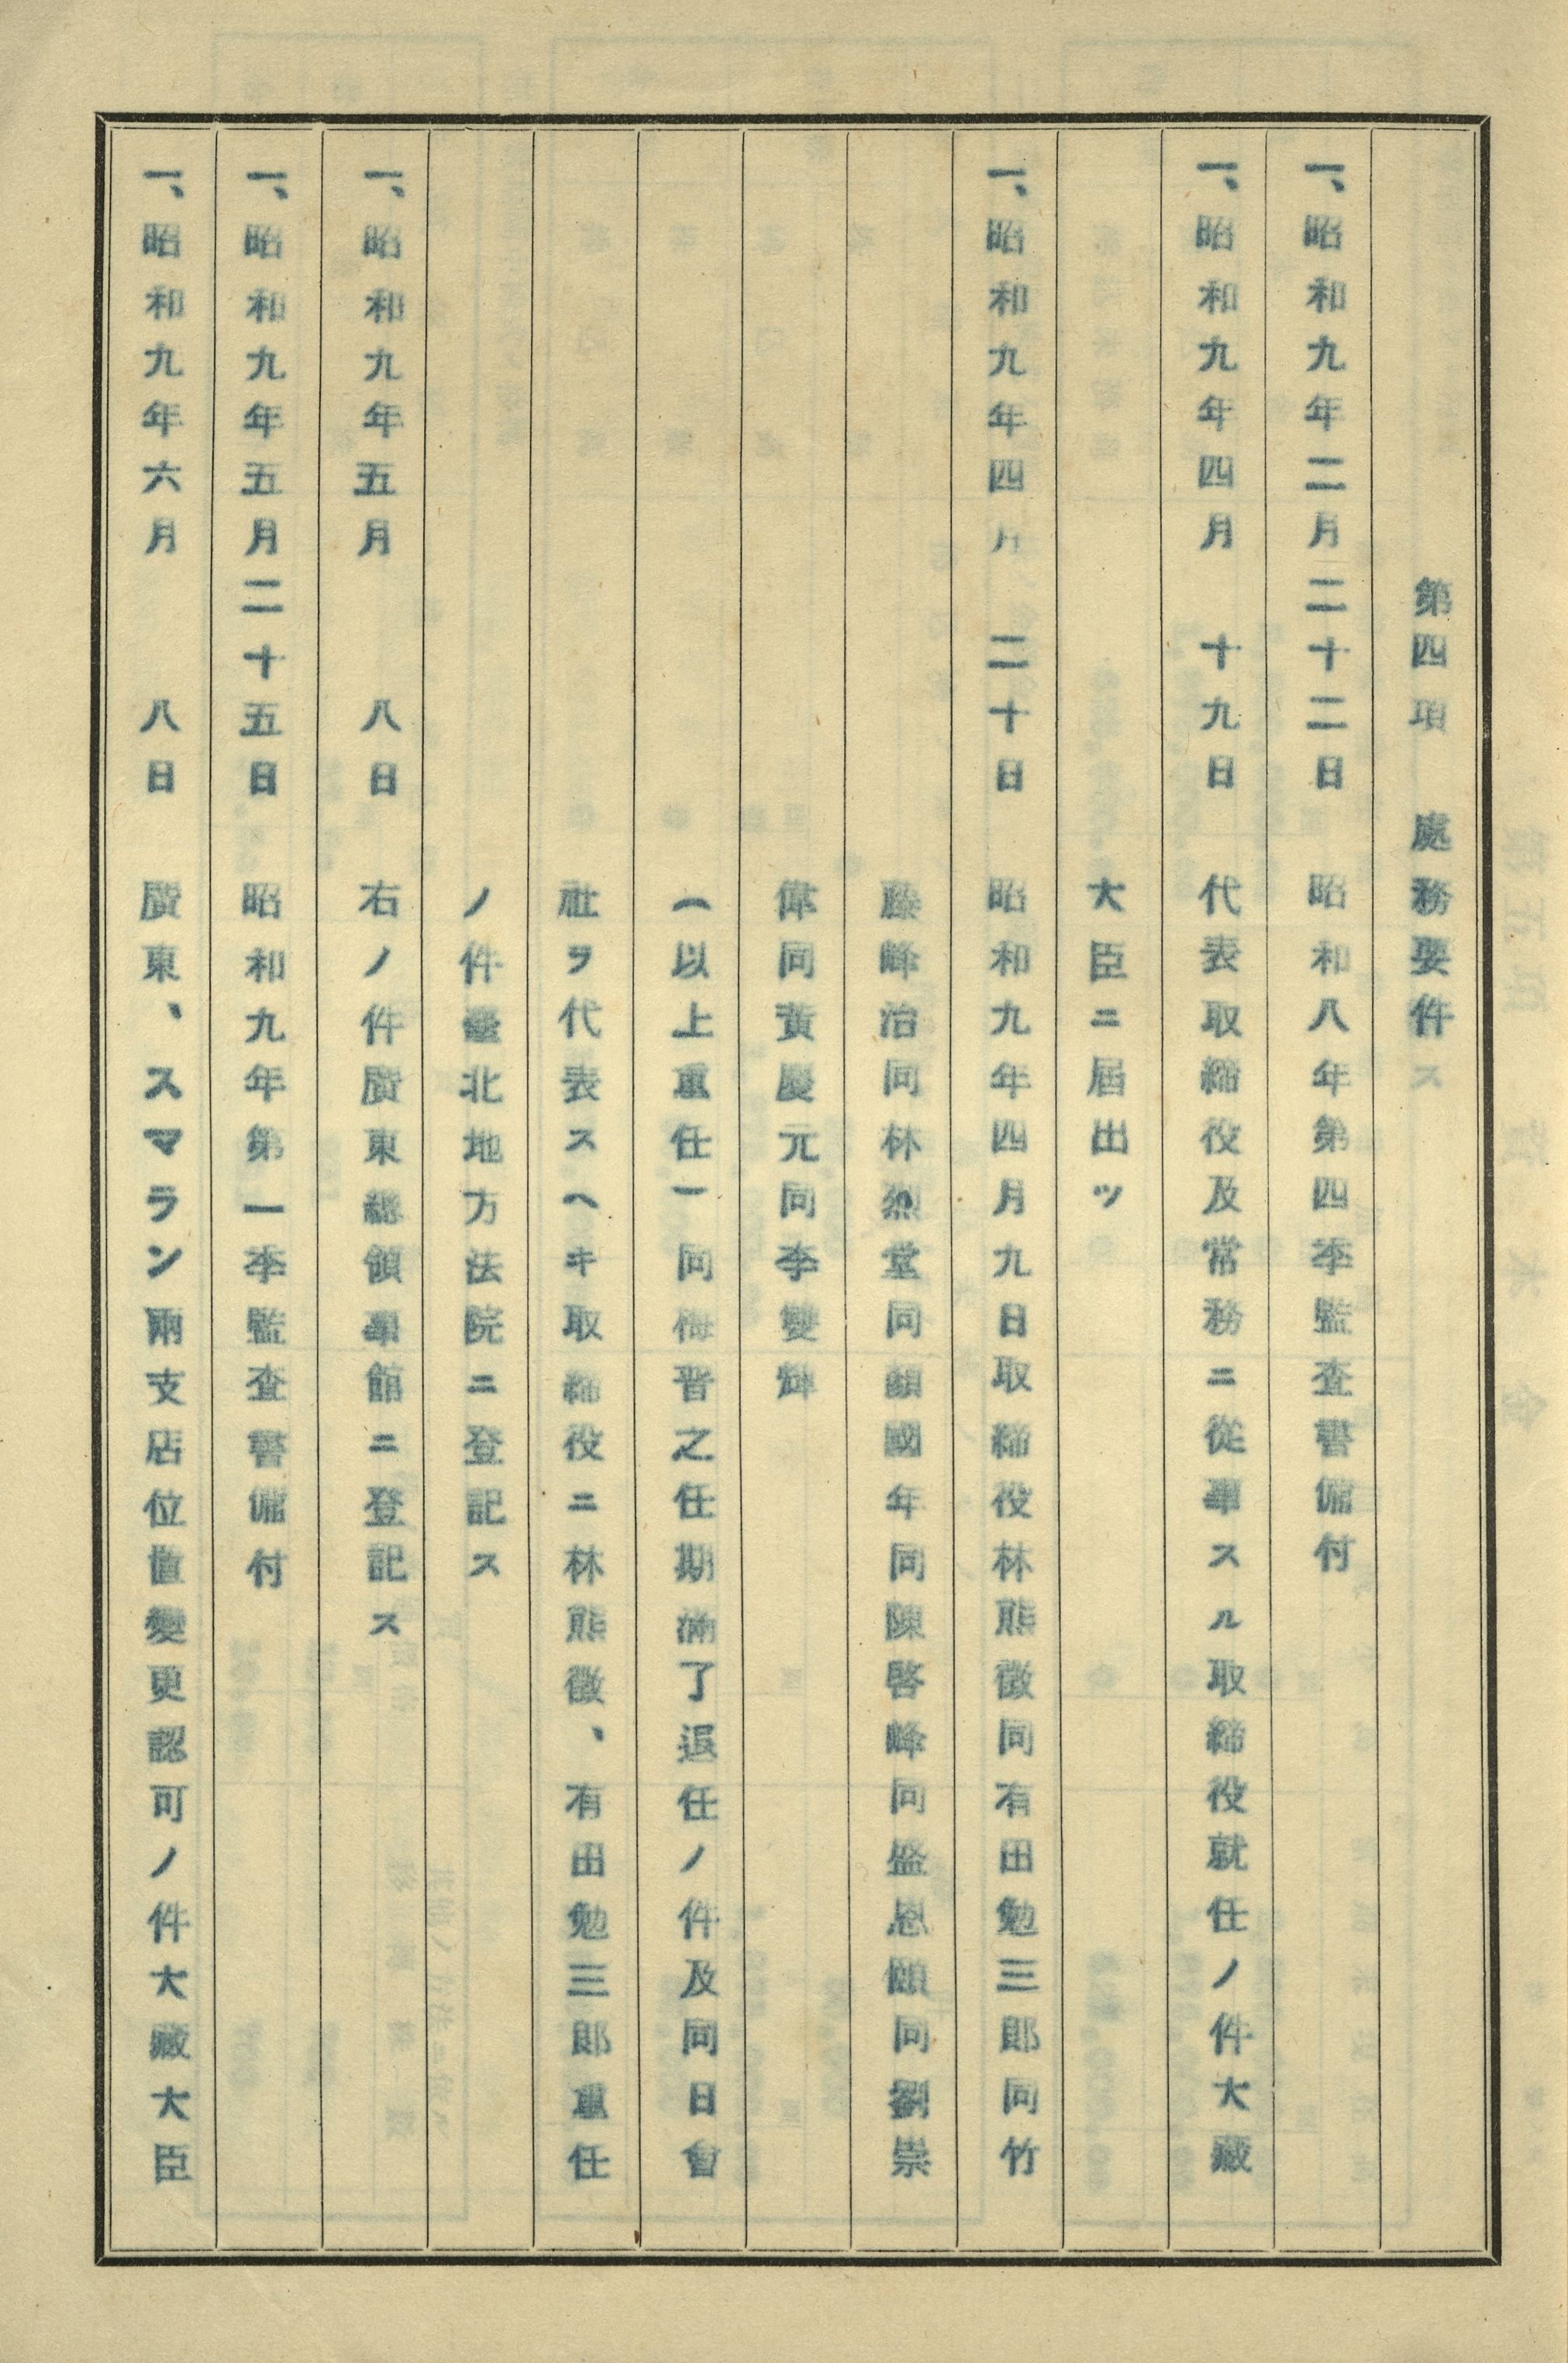 第四項　處務要件
一、昭和九年二月二十二日　昭和八年第四季監査書備付
一、昭和九年四月　十九日　代表取締役及常務ニ從事スル取締役就任ノ件大藏
大臣ニ届出ツ
一、昭和九年四月　二十日　昭和九年四月九日取締役林熊徴同有田勉三郎同竹
藤峰治同林烈堂同顏國年同陳啓峰同盛恩頤同劉崇
偉同黃慶元同李雙輝
（以上重任一同悔晋之任期滿了退任ノ件及同日會
社ヲ代表スヘキ取締役ニ林熊徴、有田勉三郎重任
ノ件臺北地方法院ニ登記ス
一、昭和九年五月　　八日　右ノ件廣東總領事館ニ登記ス
一、昭和九年五月二十五日　昭和九年第一季監査書備付
一、昭和九年六月　　八日　廣東、スマラン兩支店位置變更認可ノ件大藏大臣